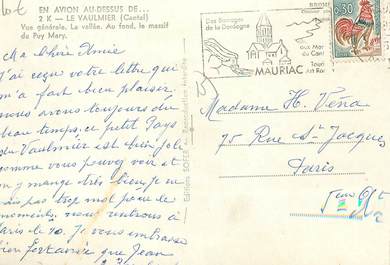 EN AVION AU-DESSUS DE...
2 K — LE VAULMIER (Cantal)
Vue générale. La vallée. Au fond, le massif
du Puy Mary.
Ma Chère Amie
J'ai reçue votre lettre qui
m'a fait bien plaisir.
nous avons toujours du
beau temps, ce petit Pays
du Vaulmier est bien joli
comme vous pouvez voir et
on y mange très bien, je ne
pas trop mal pour le
moment, nous rentrons à
Paris le 10. Je vous embrasse
bien que Jean
Editions SOFER
Reproduction Interdite
Des Barrages
de la Dordogne
aux Mts
du Cant
MAURIAC
0,30
Madame H. Vena
75 Rue St-Jacques
Paris
5ème